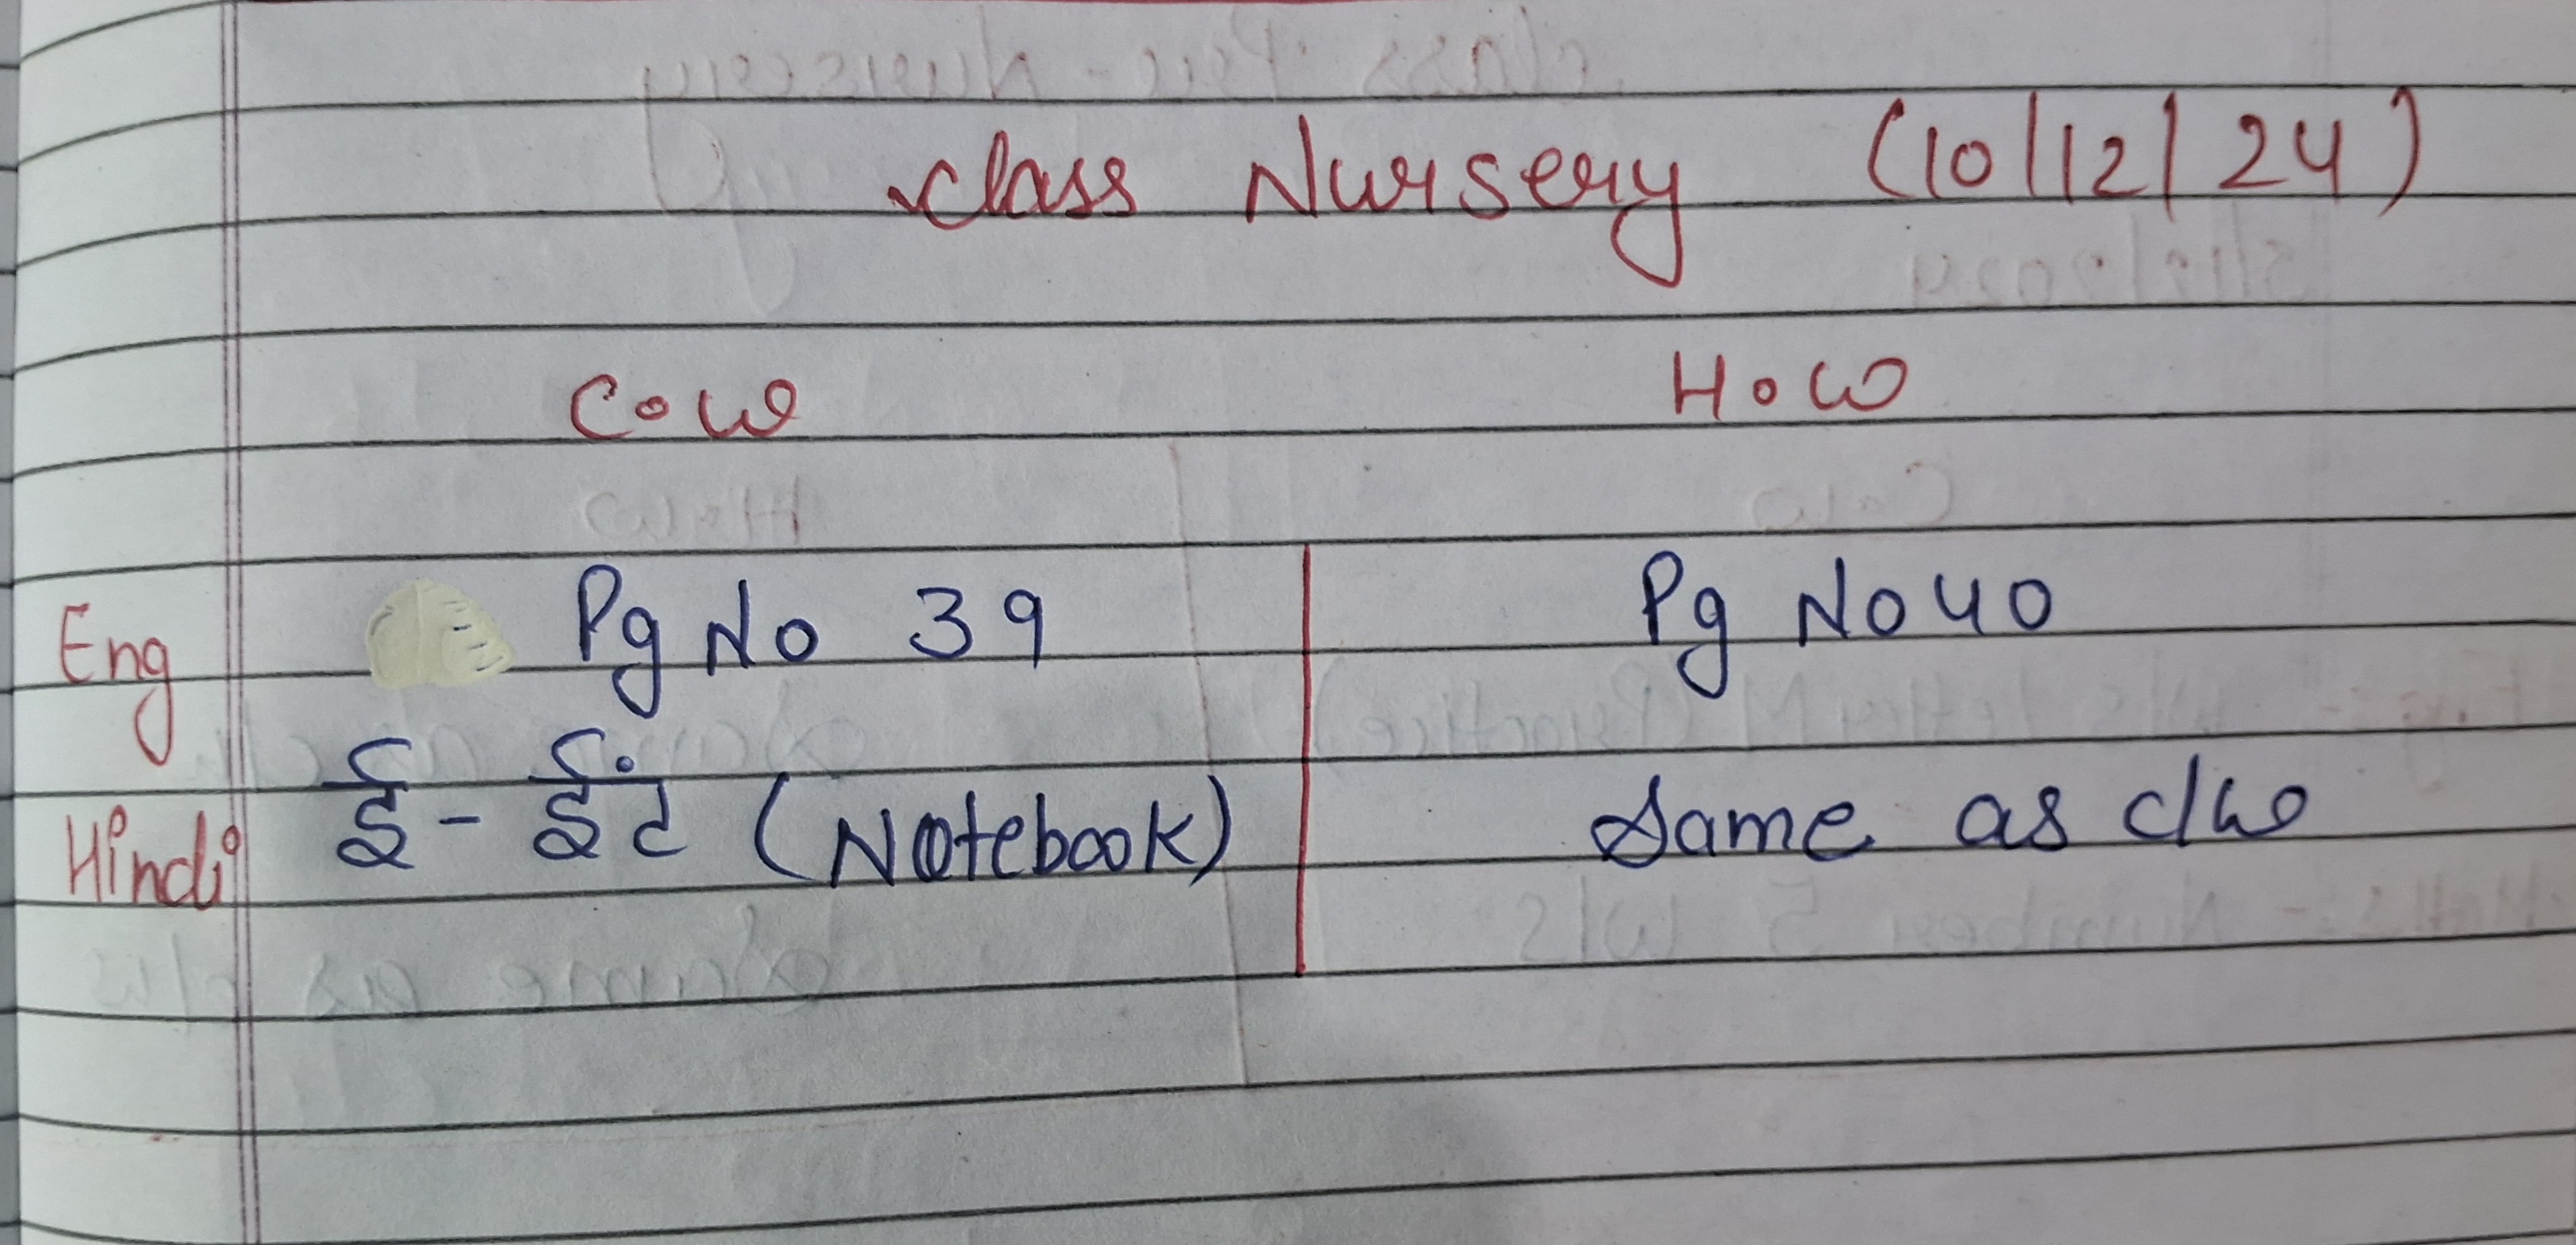 Class Nursery (10/12/24)
C.W H.W
Eng Pg No 39 Pg No 40
Hindi ई - ईंट (Notebook) Same as c/w